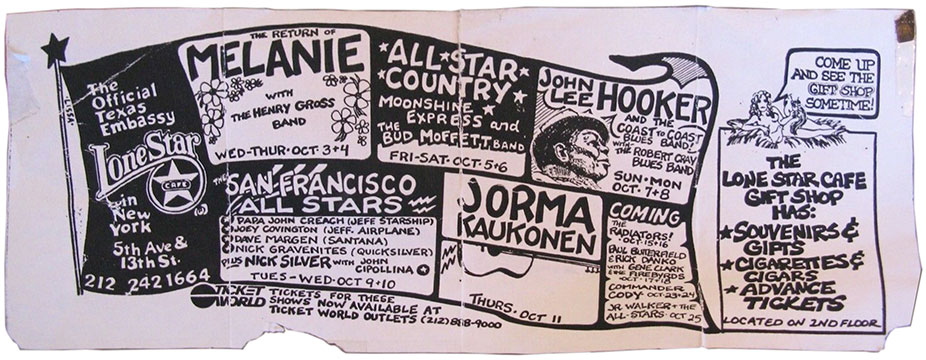 The
Official
Texas
Embassy
Lone Star
CAFE
in
New
York
5th Ave &
13th St.
212 242 1664
THE RETURN OF
MELANIE
WITH
THE HENRY GROSS
BAND
WED-THUR·OCT 3+4
ALL STAR
COUNTRY
MOONSHINE
EXPRESS and
THE BUD MOFFETT BAND
FRI-SAT·OCT·5+6
JOHN
LEE HOOKER
AND THE
COAST TO COAST
BLUES BAND!
WITH
THE ROBERT CRAY
BLUES BAND
SUN·MON
OCT·7+8
THE
SAN FRANCISCO
ALL STARS
PAPA JOHN CREACH (JEFF STARSHIP)
JOEY COVINGTON (JEFF. AIRPLANE)
DAVE MARGEN (SANTANA)
NICK GRAVENITES (QUICKSILVER)
PLUS NICK SILVER WITH JOHN
CIPOLLINA
TUES-WED·OCT 9+10
JORMA
KAUKONEN
THURS. OCT 11
COMING
THE
RADIATORS!
OCT·15+16
PAUL BUTTERFIELD
& RICK DANKO
WITH GENE CLARK
& THE FIREBYRDS
OCT·17+18
COMMANDER
CODY·OCT·23+24
JR WALKER + THE
ALL·STARS·OCT 25
TICKET
WORLD
TICKETS FOR THESE
SHOWS NOW AVAILABLE AT
TICKET WORLD OUTLETS (212) 888-9000
COME UP
AND SEE THE
GIFT SHOP
SOMETIME!
THE
LONE STAR CAFE
GIFT SHOP
HAS:
★SOUVENIRS &
GIFTS
★CIGARETTES &
CIGARS
★ADVANCE
TICKETS
LOCATED ON 2ND FLOOR